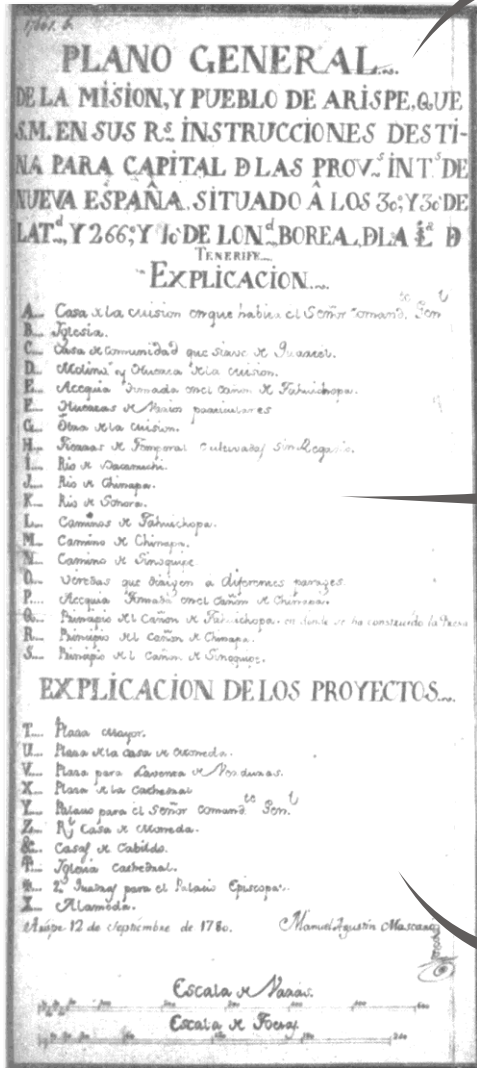 PLANO GENERAL
DE LA MISION, Y PUEBLO DE ARISPE, QUE
S.M. EN SUS R.s INSTRUCCIONES DESTI-
NA PARA CAPITAL D LAS PROV.s INT.s DE
NUEVA ESPAÑA. SITUADO Â LOS 30°, Y 30' DE
LAT.d, Y 266°, Y 10' DE LON.d BOREA, D LA D
TENERIFE
EXPLICACION
A... Casa la mision en que habita el Señor Comand.te Gen.l
B... Iglesia.
C... Casa de Comunidad que sirve de Quartel.
D... Molino y Huerta de la mision.
E... Acequia tomada en el Cañon de Tahuichopa.
F... Huertas de Varios particulares
G... de la mision.
H... Tierras de Temporal Cultivadas sin Regario.
I... Rio de Bacanuchi.
J... Rio de Chinapa.
K... Rio de Sonora.
L... Caminos de Tahuichopa.
M... Camino de Chinapa.
N... Camino de Sinoquipe
O... Veredas que dirigen a diferentes parages.
P... Acequia tomada en el Cañon de Chinapa.
Q... Principio del Cañon de Tahuichopa. en donde se ha construido la Presa
R... Principio del Cañon de Chinapa.
S... Principio del Cañon de Sinoquipe.
EXPLICACION DE LOS PROYECTOS
T... Plaza Mayor.
U... Plaza de la Casa de Moneda.
V... Plaza para de Verduras.
X... Plaza de la Cathedral
Y... Palacio para el Señor Comand.te Gen.l
Z... R.l Casa de Moneda.
&... Casas de Cabildo.
Iglesia Cathedral.
2.. para el Palacio Episcopal.
Alameda.
Arispe 12 de Septiembre de 1780. Manuel Agustin Mascaro
Escala de Varas.
Escala de